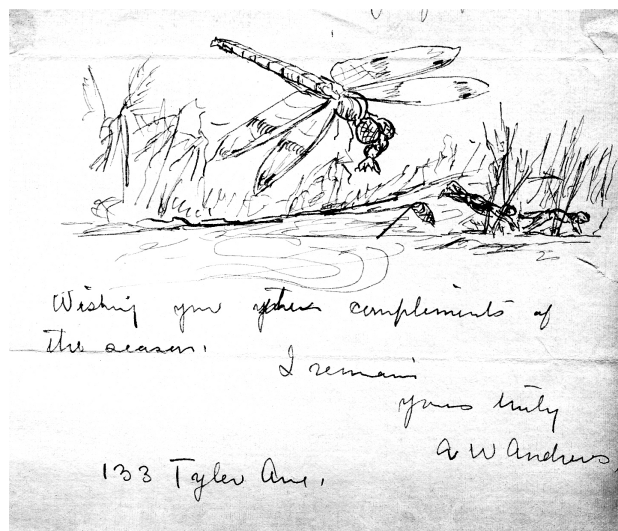 Wishing you the compliments of
the season.
I remain
yours truly
A W Andrews
133 Tyler Ave.